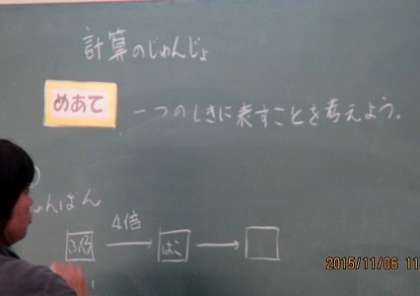 計算のじゅんじょ
めあて 一つのしきに表すことを考えよう。
4倍
はこ
2015/11/06 11